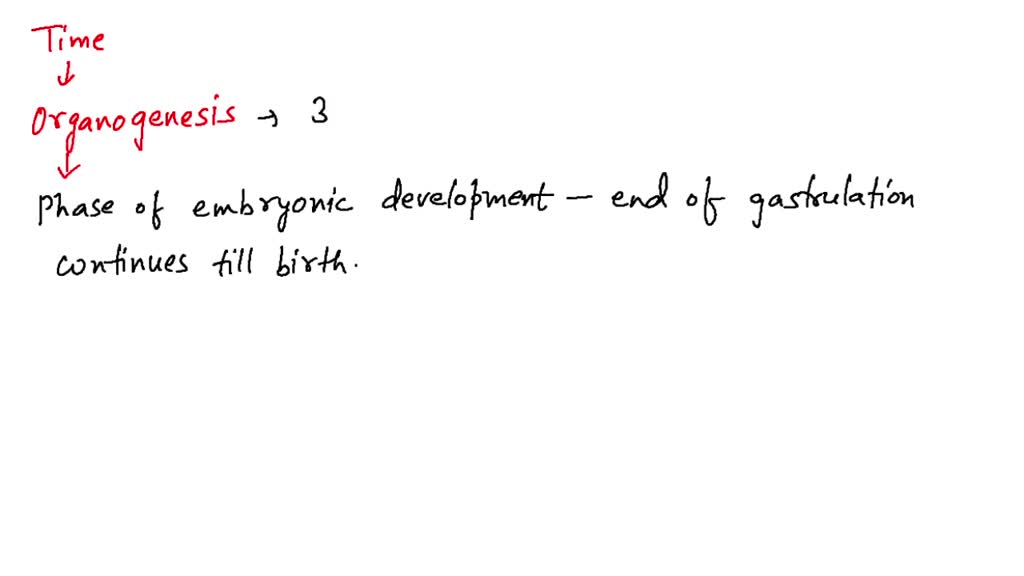 Time
↓
Organogenesis → 3
↓
Phase of embryonic development – end of gastrulation
continues till birth.